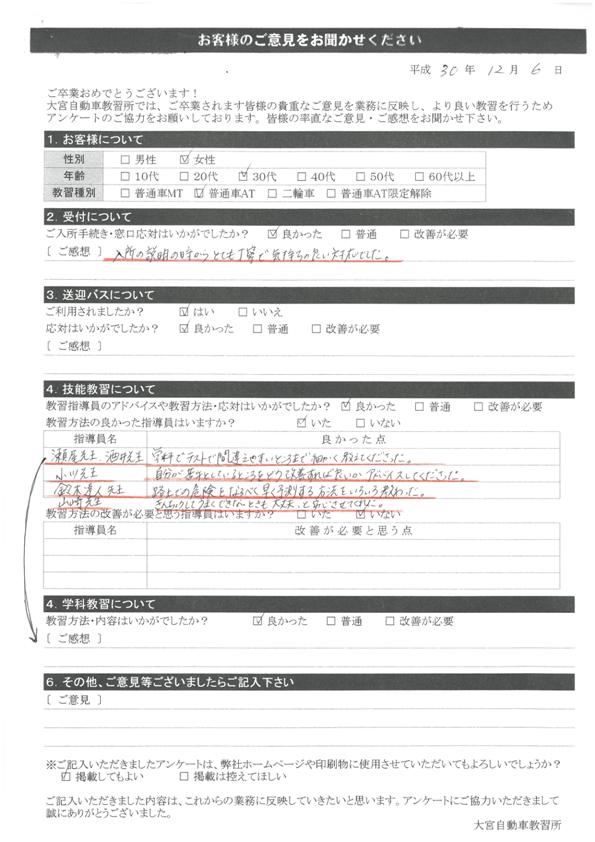 お客様のご意見をお聞かせください
平成 30 年 12 月 6 日
ご卒業おめでとうございます！
大宮自動車教習所では、ご卒業されます皆様の貴重なご意見を業務に反映し、より良い教習を行うため
アンケートのご協力をお願いしております。皆様の率直なご意見・ご感想をお聞かせ下さい。
1. お客様について
性別 □ 男性 ☑ 女性
年齢 □ 10代 □ 20代 ☑ 30代 □ 40代 □ 50代 □ 60代以上
教習種別 □ 普通車MT ☑ 普通車AT □ 二輪車 □ 普通車AT限定解除
2. 受付について
ご入所手続き・窓口応対はいかがでしたか？ ☑ 良かった □ 普通 □ 改善が必要
［ ご感想 ］ 入所の説明の時からとても丁寧で気持ちの良い対応でした。
3. 送迎バスについて
ご利用されましたか？ ☑ はい □ いいえ
応対はいかがでしたか？ ☑ 良かった □ 普通 □ 改善が必要
［ ご感想 ］
4. 技能教習について
教習指導員のアドバイスや教習方法・応対はいかがでしたか？ ☑ 良かった □ 普通 □ 改善が必要
教習方法の良かった指導員はいますか？ ☑ いた □ いない
指導員名 良かった点
瀬尾先生、酒井先生 学科でテストで間違えやすいところまで細かく教えてくださった。
小川先生 自分が苦手としているところをどう改善すれば良いかアドバイスしてくださった。
鈴木 先生 路上での危険をなるべく早く予測する方法をいろいろ教わった。
山崎先生 うまくできないときも大丈夫、と
教習方法の改善が必要と思う指導員はいますか？ □ いた ☑ いない
指導員名 改善が必要と思う点
4. 学科教習について
教習方法・内容はいかがでしたか？ ☑ 良かった □ 普通 □ 改善が必要
［ ご感想 ］
6. その他、ご意見等ございましたらご記入下さい
［ ご意見 ］
※ご記入いただきましたアンケートは、弊社ホームページや印刷物に使用させていただいてもよろしいでしょうか？
☑ 掲載してもよい □ 掲載は控えてほしい
ご記入いただきました内容は、これからの業務に反映していきたいと思います。アンケートにご協力いただきまして
誠にありがとうございました。
大宮自動車教習所